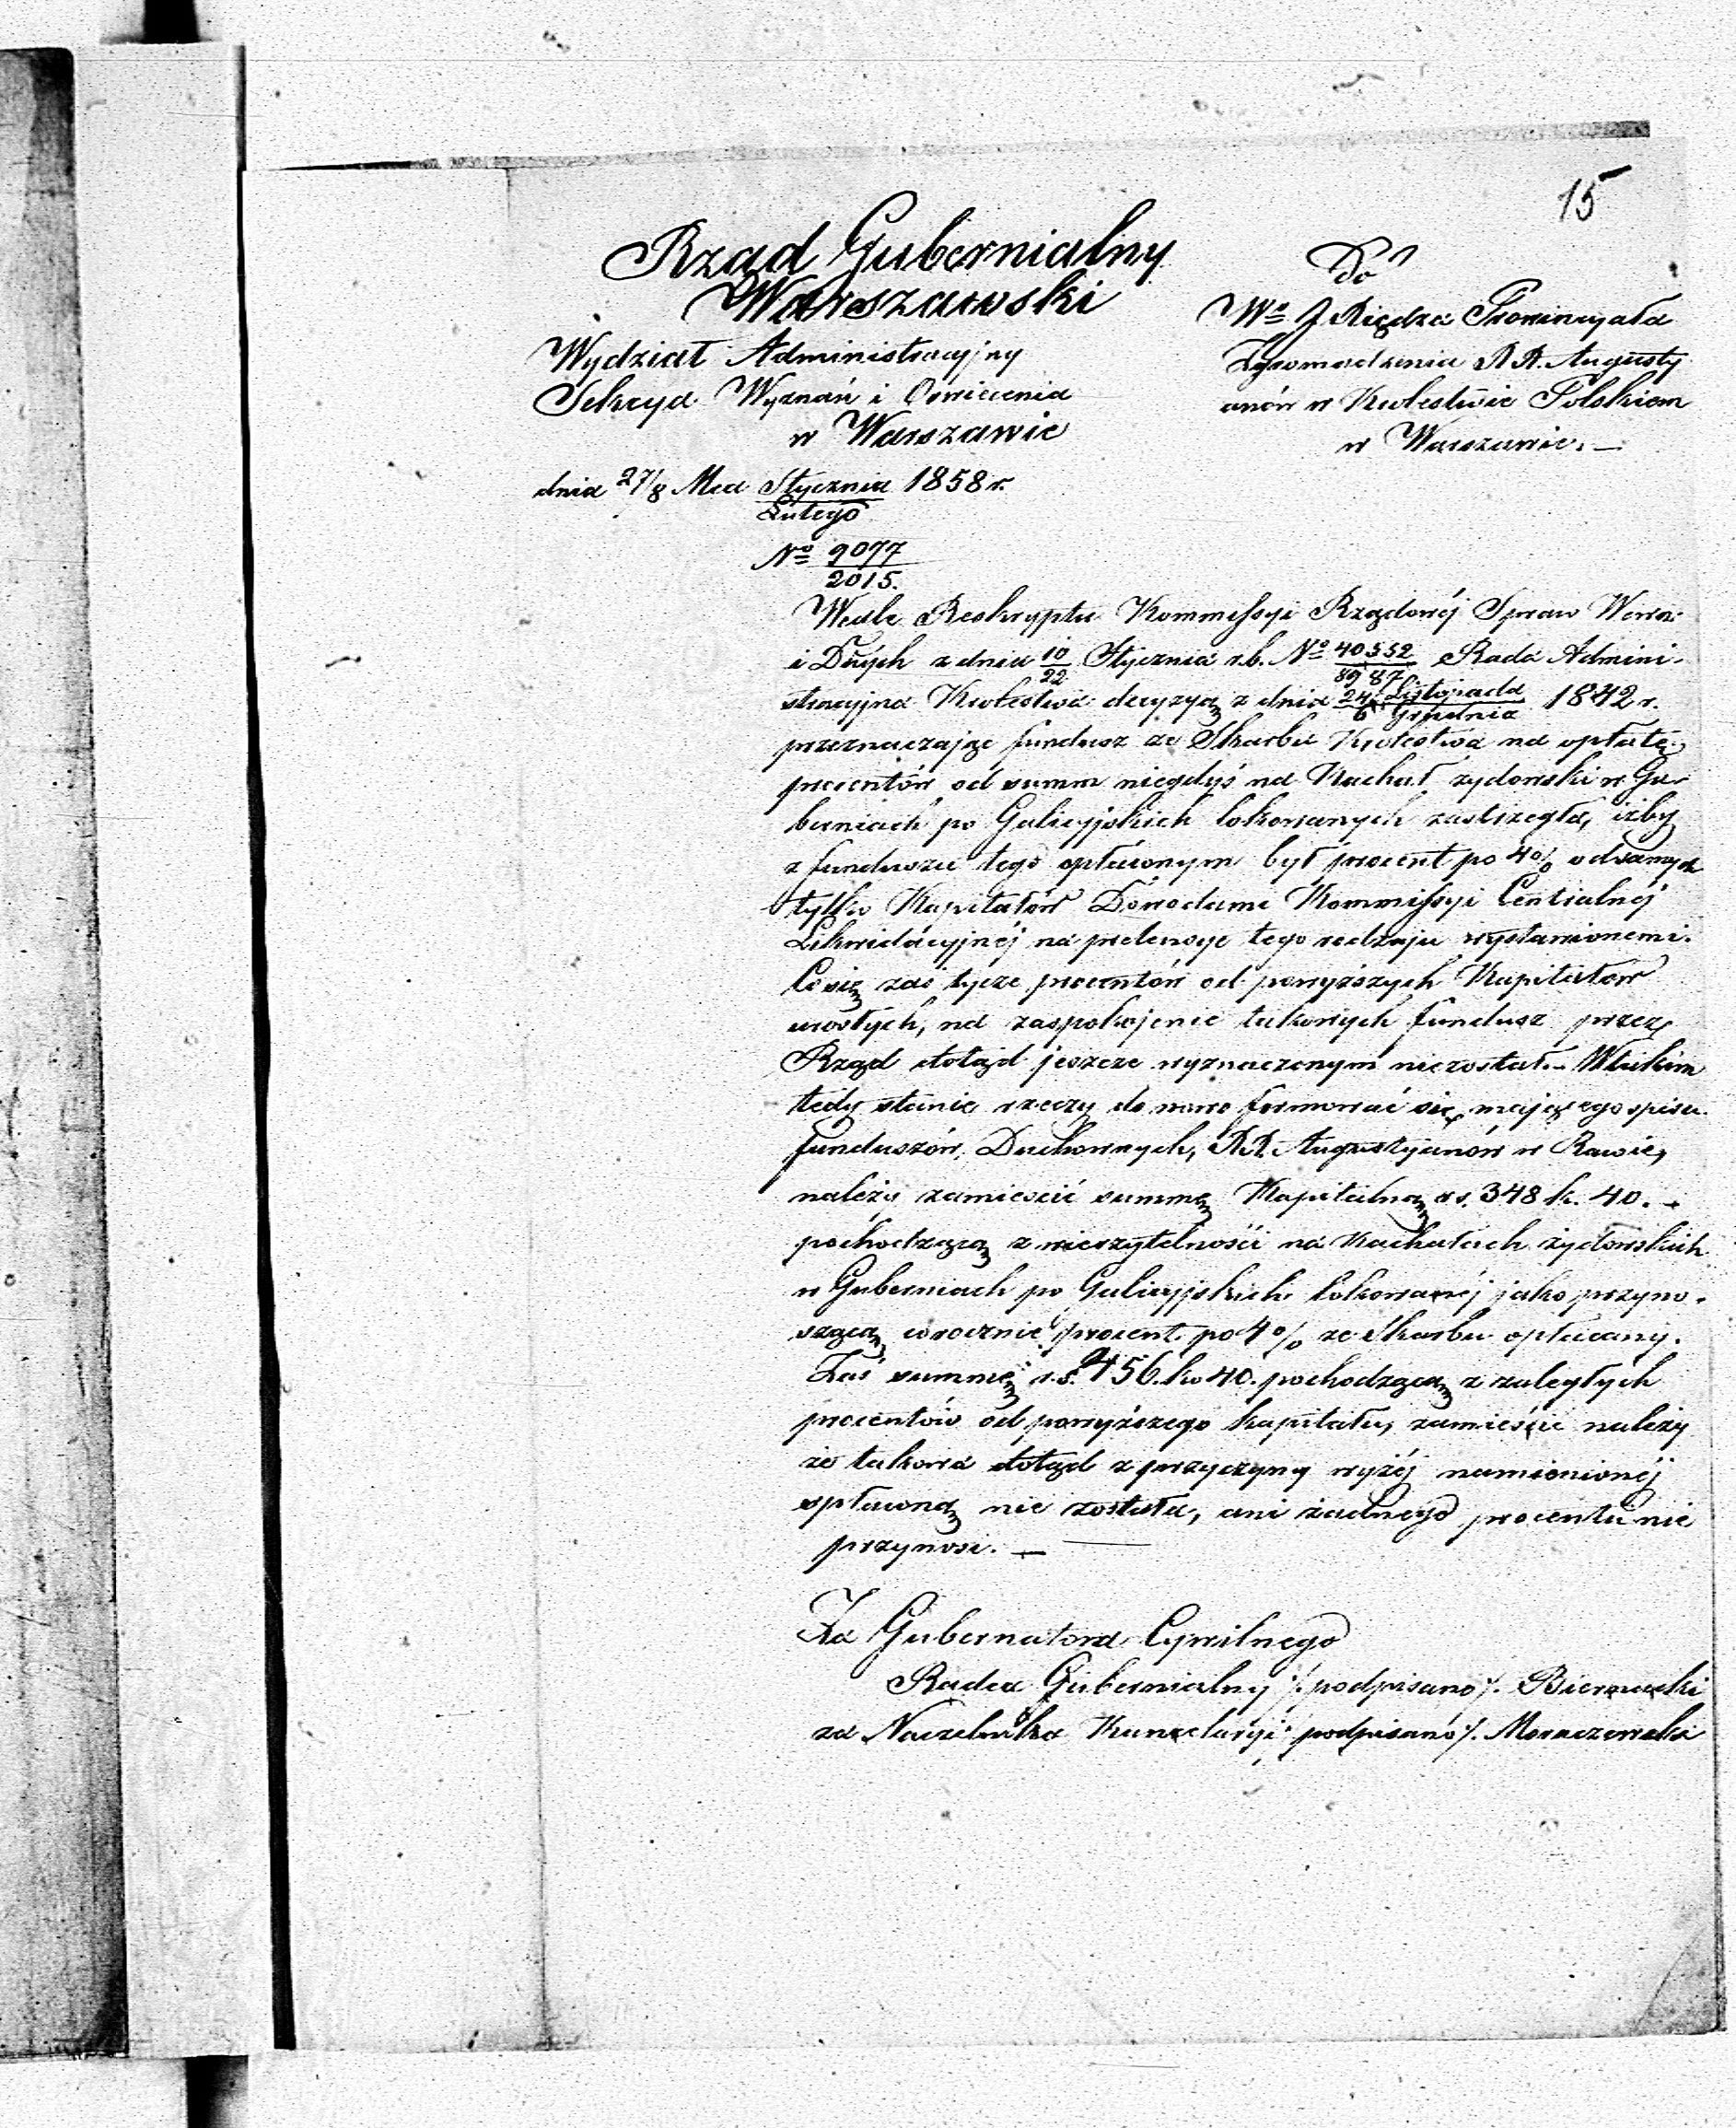 15
Rząd Gubernialny
Warszawski
Wydział Administracyjny
Sekcya Wyznań i Oswiecenia
w Warszawie
dnia 27/8 Mca Stycznia/Lutego 1858 r.
No 9077/2015.
Do
Wo J. Xiędza Prowincyała
Zgromadzenia XX. Augusty
anów w Krolestwie Polskiem
w Warszawie. —
Wedle Reskryptu Kommissyi Rządowéj Spraw Wewn:
i Duch z dnia 10/22 Stycznia r.b. No 40552/8987 Rada Admini-
stracyjna Krolestwa decyzyą z dnia 24 Listopada/6 Grudnia 1842 r.
przeznaczając fundusz ze Skarbu Krolestwa na opłatę
procentów od summ niegdyś na Kachał żydowski w Gu-
berniach po Galicyjskich lokowanych zastrzegła, iżby
z funduszu tego opłaconym był procent po 4% od samych
tylko Kapitałów Dowodami Kommissyi Centralnéj
Likwidacyjnéj na pretensye tego rodzaju wystawionemi.
Co się zaś tycze procentów od powyższych Kapitałów
urosłych, na zaspokojenie takowych fundusz przez
Rząd dotąd jeszcze wyznaczonym niezostał. – W takim
tedy stanie rzeczy do nowo formować się mającego spisu
funduszów Duchownych, XX. Augustyanów w Rawie,
należy zamieścić summę Kapitalną rs. 348 k. 40. –
pochodzącą z wierzytelności na Kachałach żydowskich
w Guberniach po Galicyjskich lokowanéj jako przyno-
szącą corocznie procent po 4% ze Skarbu opłacany.
Zaś summę r.s. 456. ko 40. pochodzącą z zaległych
procentów od powyższego kapitału, zamieścić należy
że takowa dotąd z przyczyny wyżéj namienionéj
opłaconą nie została, ani żadnego procentu nie
przynosi. —
Za Gubernatora Cywilnego
Radca Gubernialny /: podpisano /. Biernacki
za Naczelnika Kancelaryi podpisano /. Moraczewski